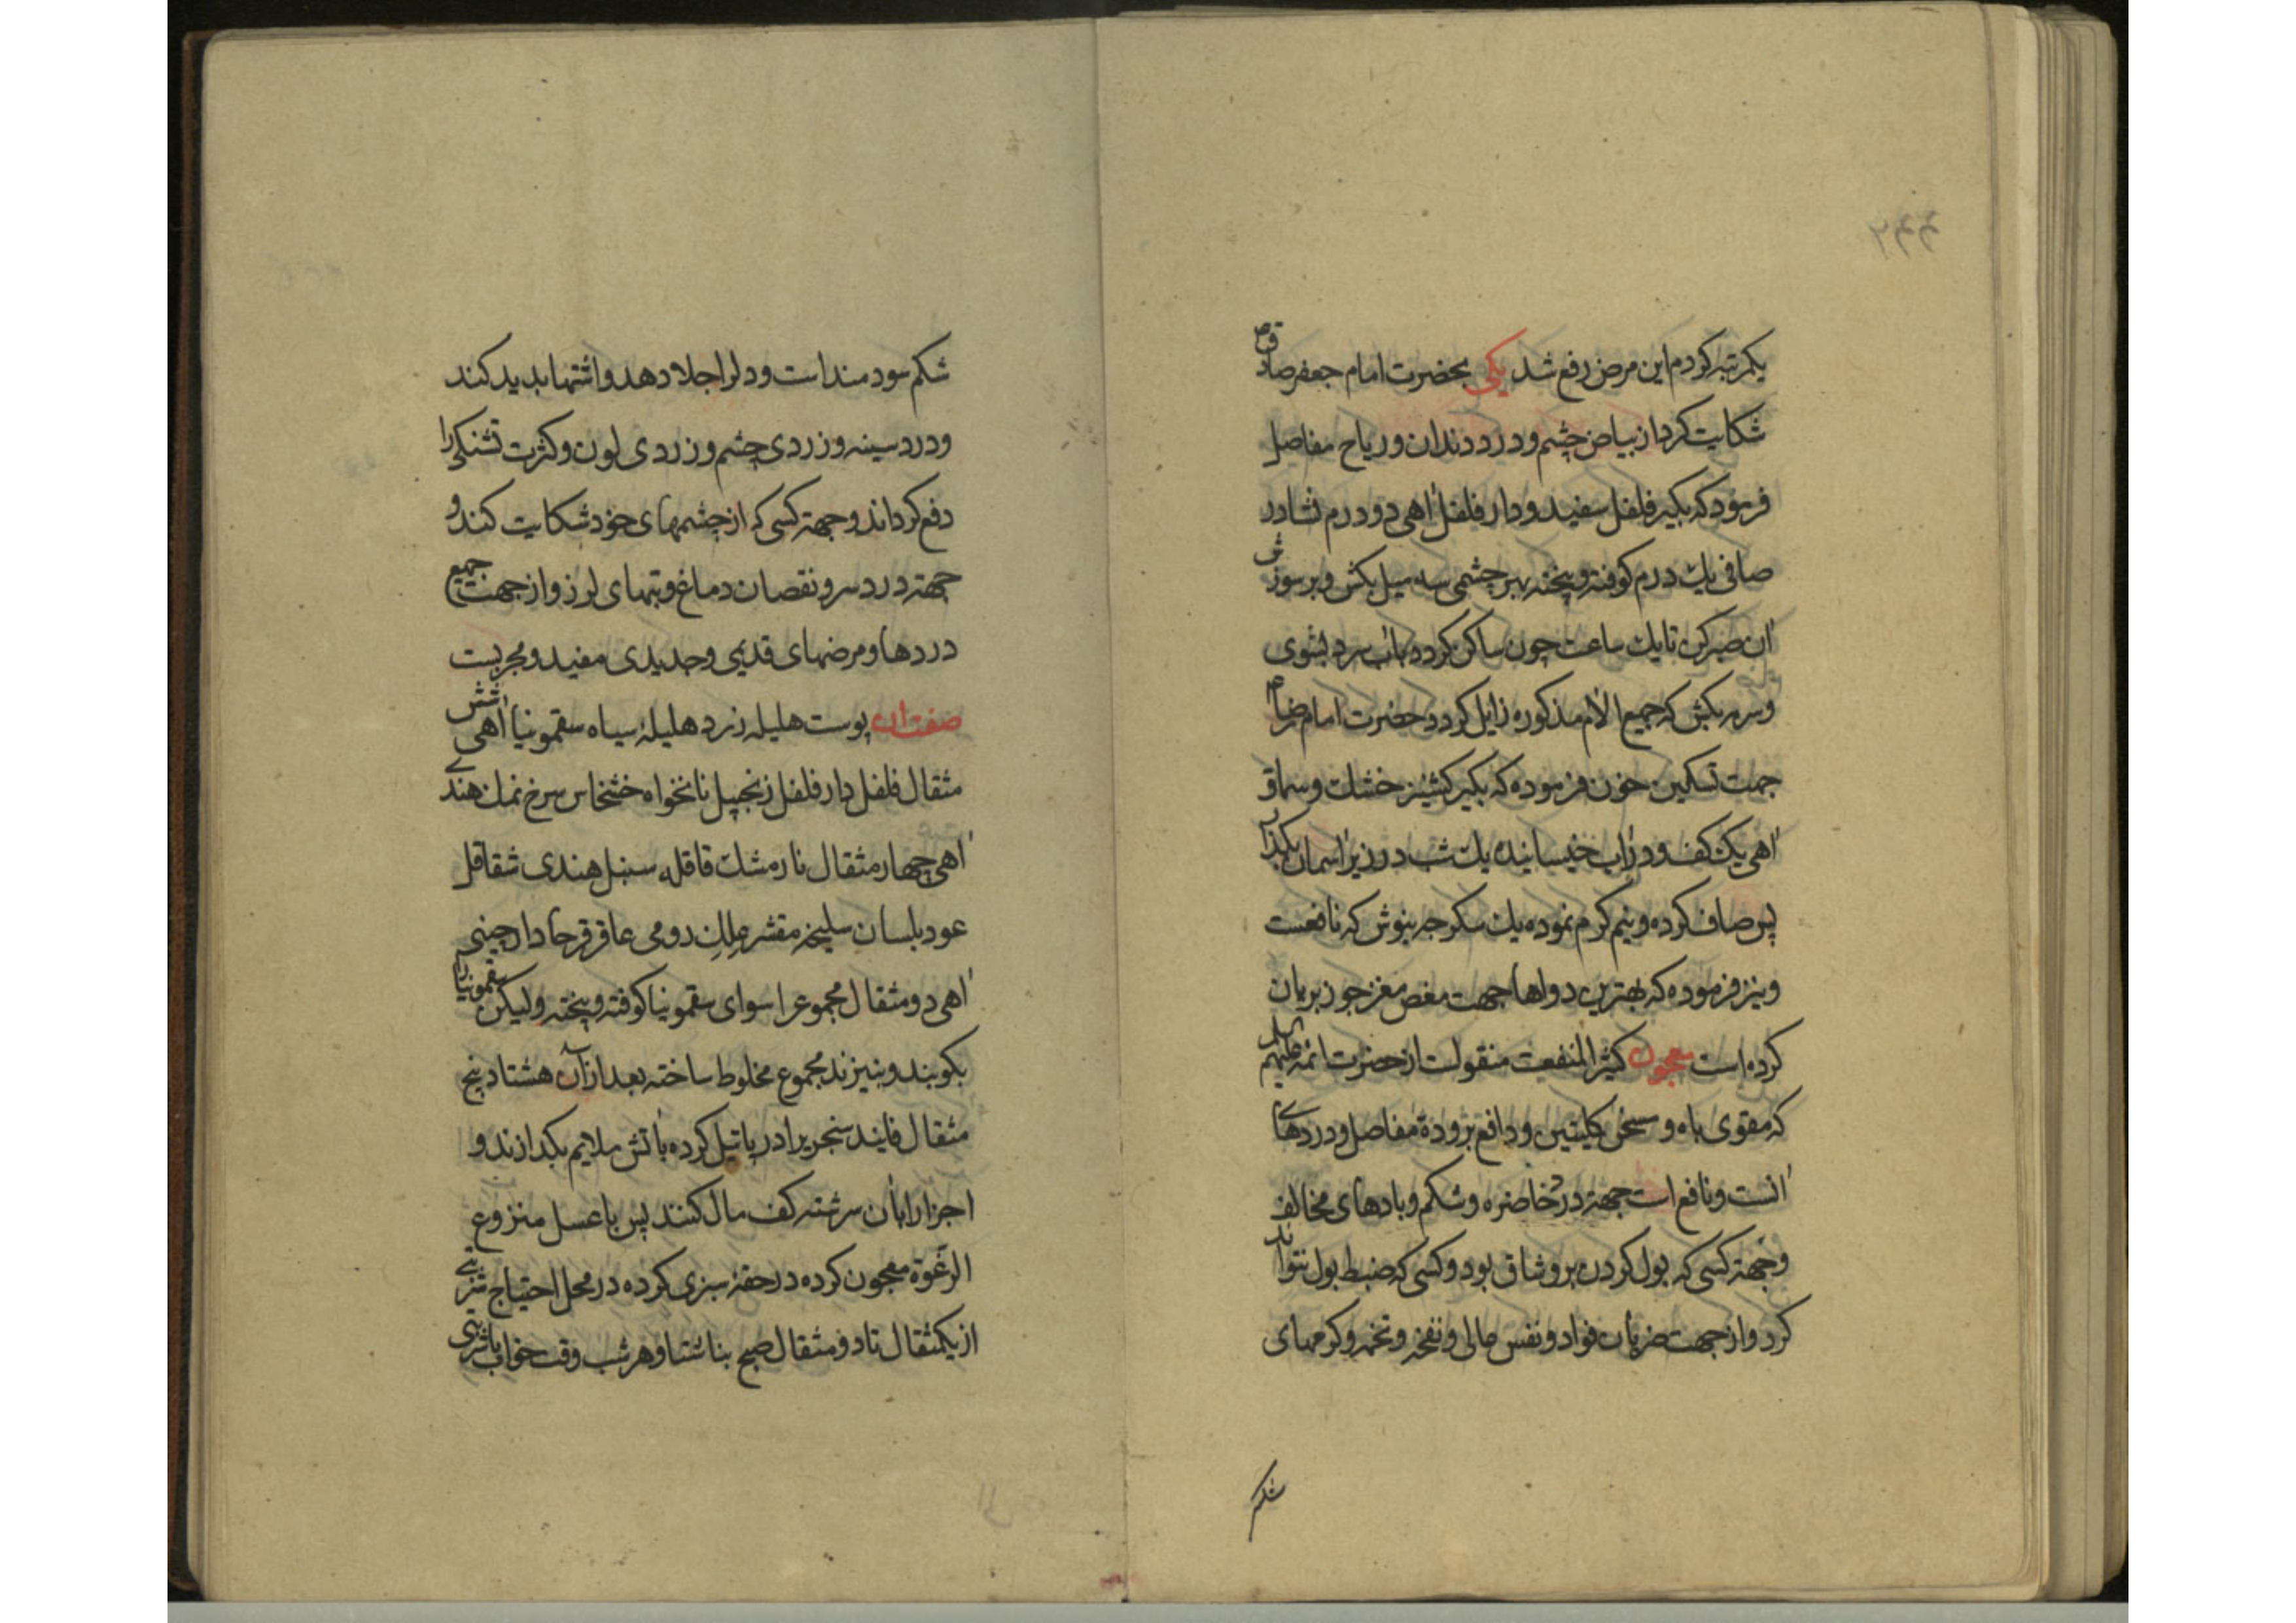 یکمرتبه کردم این مرض رفع شد یکی بحضرت امام جعفر صادق
شکایت کرد از بیاض چشم و درد دندان و ریاح مفاصل
فرمود که بگیر فلفل سفید و دار فلفل اهی دو درم نشادر
صافی یک درم کوفته و بیخته بهر چشمی سه میل بکش و بر سوزش
ان صبر کن تا یک ساعت چون ساکن کردد باب سرد بشوی
و سرمه بکش که جمیع الام مذکوره زایل کردد حضرت امام رضا
جهت تسکین خون فرموده که بکیر کشنیز خشک و سماق
اهی یک کف و در اب خیسانیده یک شب در زیر اسمان بکذار
پس صاف کرده و نیم کرم نموده یک سکرجه بنوش که نافعست
و نیز فرموده که بهترین دواها جهت مغص مغز جوز بریان
کرده است معجون کثیر المنفعت منقولست از حضرت ائمه علیهم
که مقوی باه و مسخن کلیتین و دافع برودة مفاصل و دردهای
انست و نافع است جهة درد خاصره و شکم و بادهای مخالف
و جهة کسی که بول کردن برو شاق بود و کسی که ضبط بول نتواند
کرد و از جهت ضربان فواد و نفس عالی و نفخه و تخمه و کرمهای
شکم
شکم سودمند است و دلرا جلا دهد و اشتها بدید کند
و درد سینه و زردی چشم و زردی لون و کثرت تشنکی را
دفع کرداند و جهة کسی که از چشمهای خود شکایت کند و
جهة درد سر و نقصان دماغ و تبهای لرز و از جهت جمیع
دردها و مرضهای قدیمی و جدیدی مفید و مجربست
صفت ان پوست هلیله زرد هلیلۀ سیاه سقمونیا اهی شش
مثقال فلفل دار فلفل زنجبیل نانخواه خشخاش سرخ نمک هندی
اهی چهار مثقال نارمشک قاقله سنبل هندی شقاقل
عود بلسان سلیخه مقشر علک رومی عاقرقرحا دارچینی
اهی دو مثقال مجموع را سوای سقمونیا کوفته و بیخته و لیکن سقمونیا را
بکوبند و نبیزند مجموع مخلوط ساخته بعد از آن هشتاد پنج
مثقال فانید سنجریرا در پاتیل کرده باتش ملایم بکدازند و
اجزا را بان سرشته کف مال کنند پس با عسل منزوع
الرغوة معجون کرده در حقۀ سبزی کرده در محل احتیاج شربتی
از یکمثقال تا دو مثقال صبح بناشتا و هر شب وقت خواب باشربتی